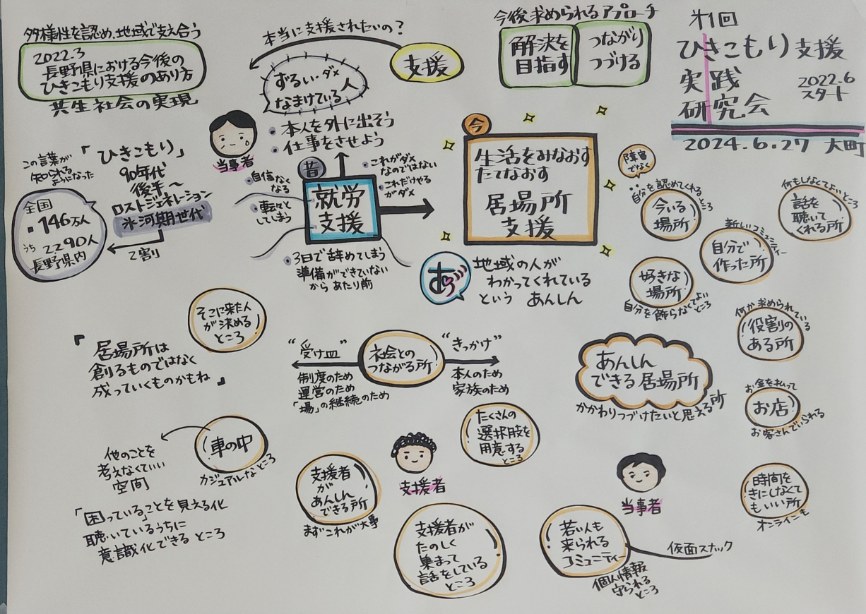 多様性を認め、地域で支え合う
2022.3
長野県における今後の
ひきこもり支援のあり方
共生社会の実現
本当に支援されたいの?
支援
ずるい・ダメ
なまけている人
今後求められるアプローチ
解決を
目指す
つながり
つづける
第1回
ひきこもり支援
実践
研究会
2022.6
スタート
2024.6.27 大町
この言葉が
知られる
ようになった
「ひきこもり」
90年代
後半〜
ロストジェネレーション
氷河期世代
2割
全国
146万人
うち 2290人
長野県内
当事者
・本人を外に出そう
・仕事をさせよう
昔
就労
支援
・自信なく
なる
・転々と
してしまう
・これがダメ
なのではない
・これだけやる
がダメ
・3日で辞めてしまう
準備ができていない
から あたり前
今
生活をみなおす
たてなおす
居場所
支援
地域の人が
わかってくれている
という あんしん
障害
でなく
自分を認めてくれるところ
今いる
場所
何もしなくてよいところ
話を
聴いて
くれる所
新しいコミュニティー
自分で
作った所
好きな
場所
自分を飾らなくてよい
ところ
何か求められている
役割の
ある所
お金を払って
お店
お客さんでいられる
時間を
きにしなくて
もいい所
オンラインも
あんしん
できる居場所
かかわりつづけたいと思える所
そこに来た人
が決める
ところ
『居場所は
創るものではなく
成っていくものかもね』
"受け皿"
制度のため
運営のため
「場」の継続のため
社会との
つながる所
"きっかけ"
本人のため
家族のため
車の中
カジュアルなところ
他のことを
考えなくていい
空間
「困っていることを見える化
聴いているうちに
意識化できる ところ
支援者
が
あんしん
できる所
まずこれが大事
支援者
たくさんの
選択肢を
用意する
ところ
支援者が
たのしく
集まって
話をしている
ところ
当事者
若い人も
来られる
コミュニティー
個人情報
守られる
ところ
仮面スナック